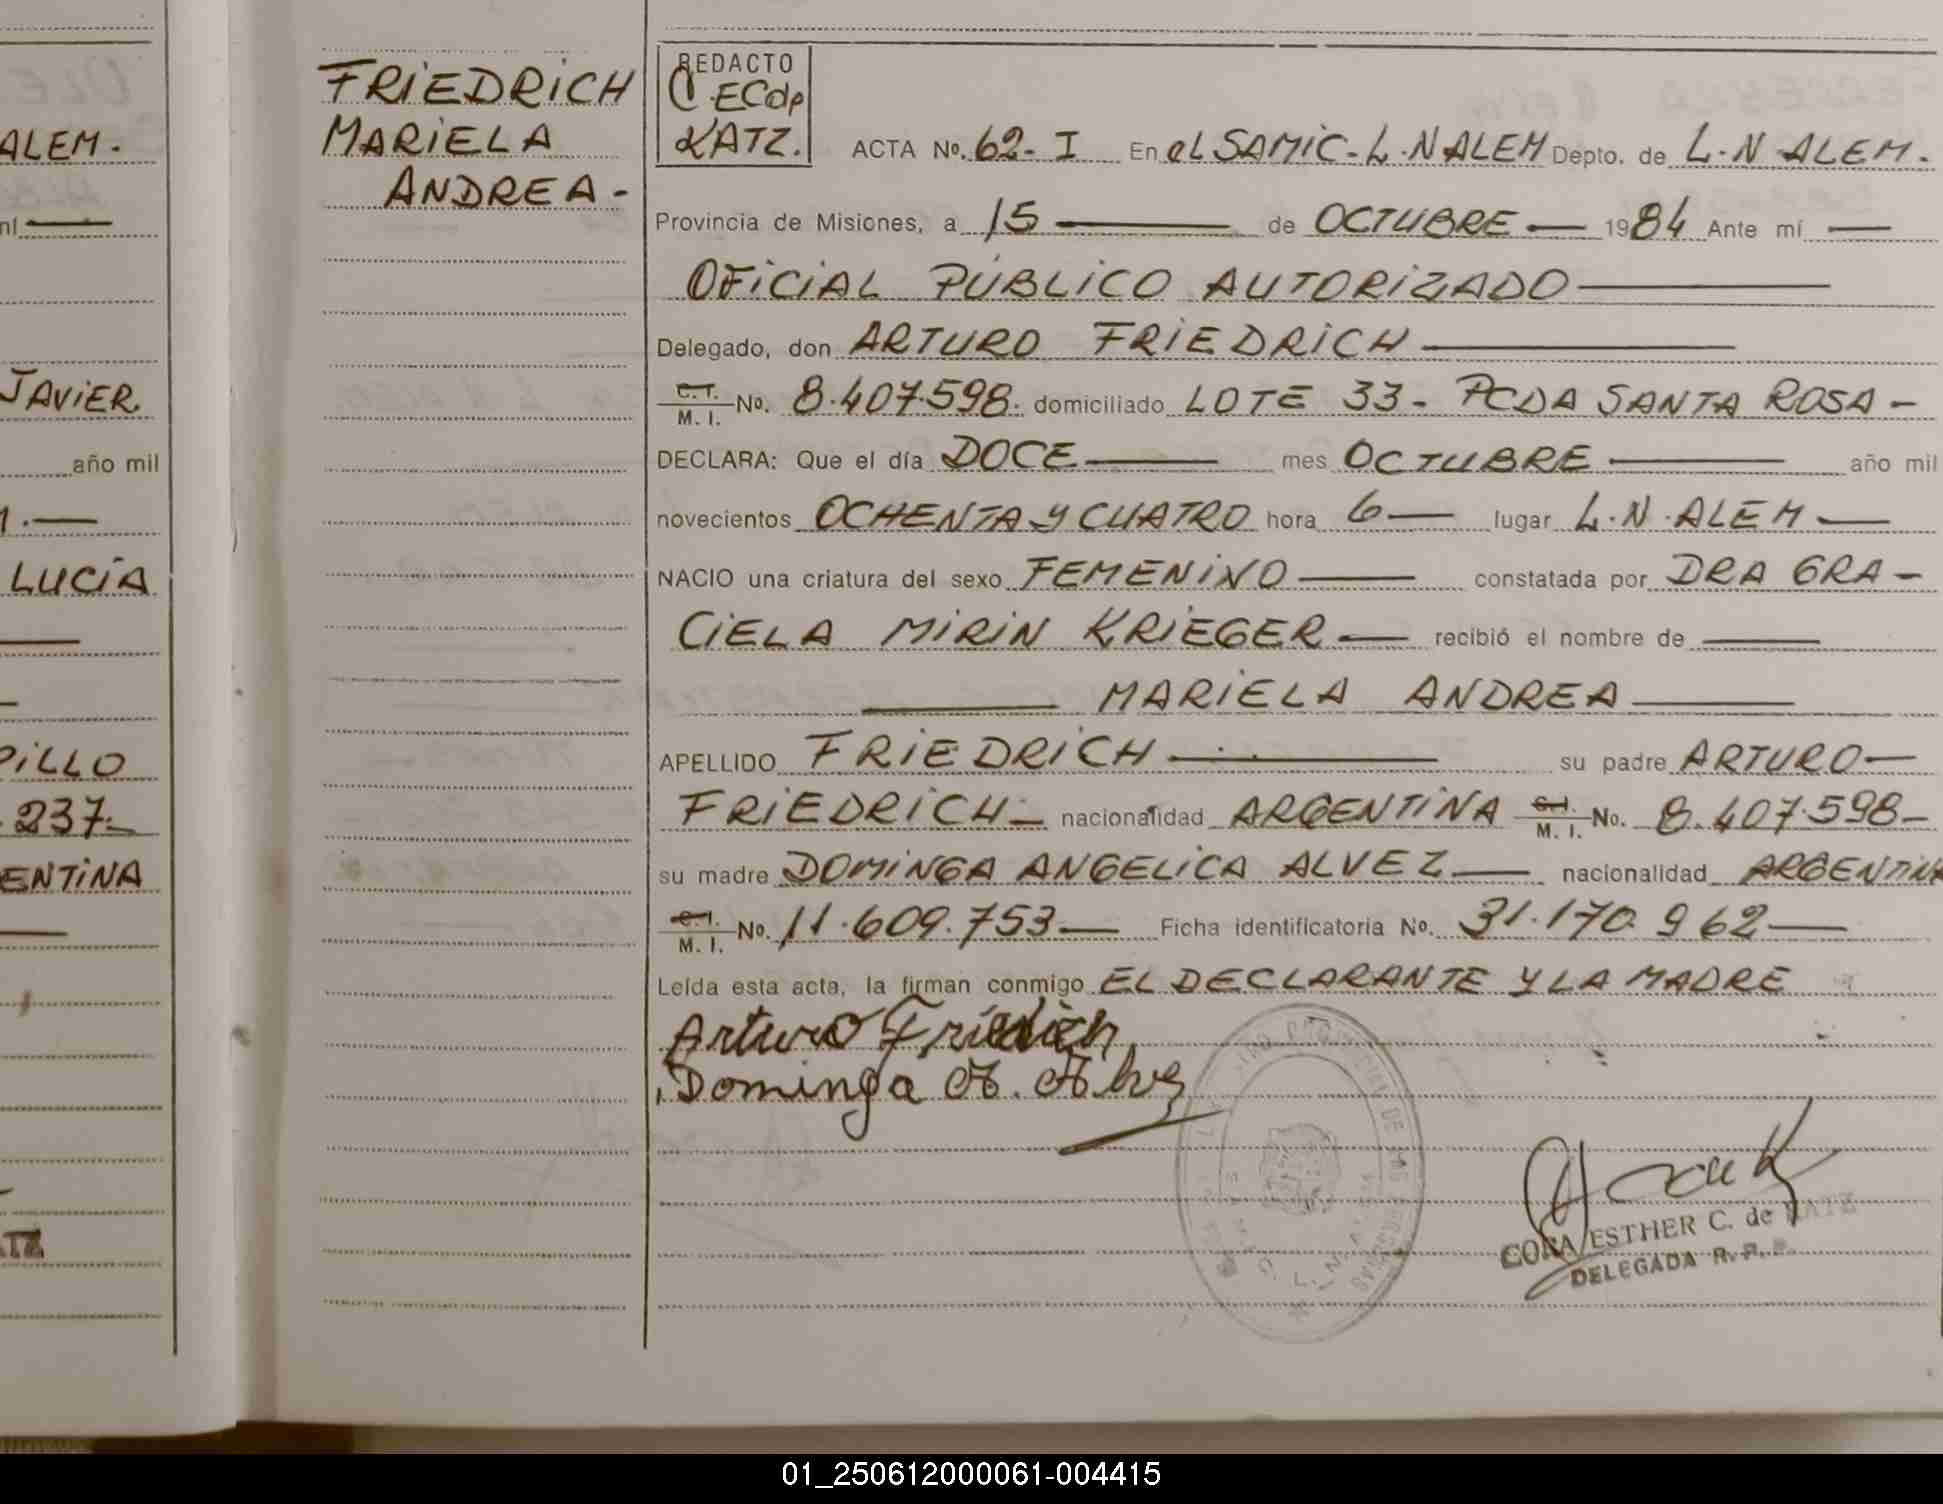 ALEM.
ní
JAVIER.
año mil
LUCÍA
PILLO
237.
ENTINA
FRIEDRICH
MARIELA
ANDREA-
REDACTO
C ECdp
KATZ.
ACTA No. 62- I En eL SAMIC-L.N ALEM Depto. de L.N ALEM.
Provincia de Misiones, a 15 de OCTUBRE 1984 Ante mí
OFICIAL PÚBLICO AUTORIZADO
Delegado, don ARTURO FRIEDRICH
C.I. M. I. No. 8.407.598. domiciliado LOTE 33- PCDA SANTA ROSA-
DECLARA: Que el día DOCE mes OCTUBRE año mil
novecientos OCHENTA Y CUATRO hora 6 lugar L.N.ALEM
NACIO una criatura del sexo FEMENINO constatada por DRA GRA-
CIELA MIRIN KRIEGER recibió el nombre de
MARIELA ANDREA
APELLIDO FRIEDRICH su padre ARTURO
FRIEDRICH nacionalidad ARGENTINA C.I. M. I. No. 8.407.598-
su madre DOMINGA ANGELICA ALVEZ nacionalidad ARGENTINA
C.I. M. I. No. 11.609.753 Ficha identificatoria No. 31.170.962
Leída esta acta, la firman conmigo EL DECLARANTE Y LA MADRE
Arturo Friedrich
Dominga A. Alvez
CORA ESTHER C. de KATZ
DELEGADA R. P.
01_250612000061-004415